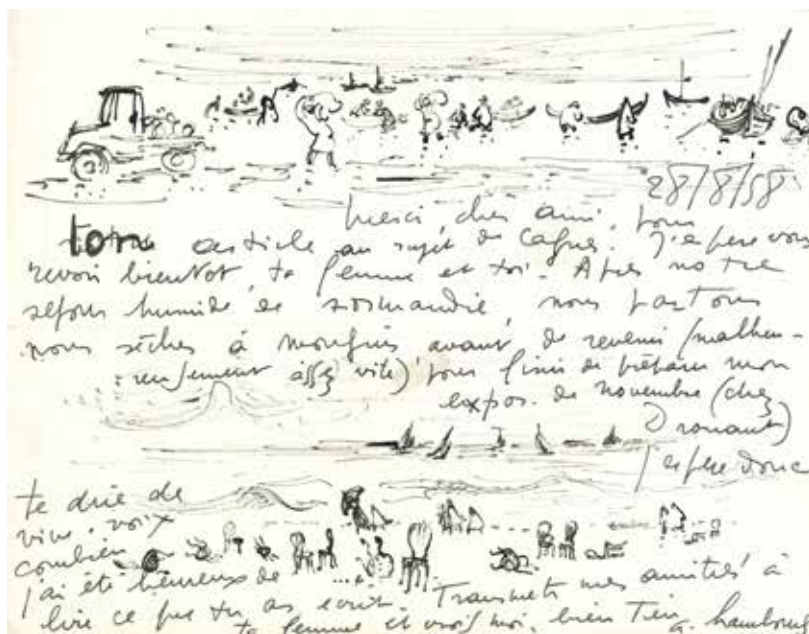 28/8/58
Merci, cher ami, pour
ton article au sujet de Cagnes. J'espère vous
revoir bientôt, ta femme et toi. Après notre
séjour humide de Normandie, nous partons
nous sécher à Mougins avant de revenir (malheu-
reusement assez vite) pour finir de préparer mon
expos. de novembre (chez
Drouant)
J'espère donc
te dire de
vive voix
combien
j'ai été heureux de
lire ce que tu as écrit. Transmets mes amitiés à
ta femme et crois moi, bien tien a. hambourg